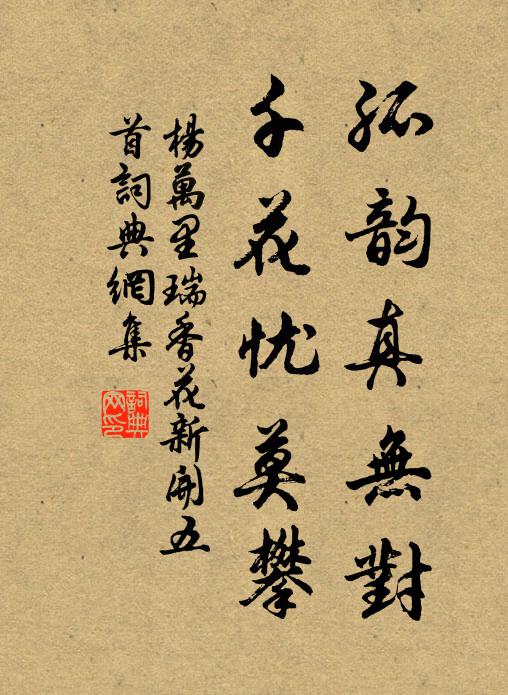 孤韵真無對
千花忧莫攀
楊萬里瑞香花新開五
首詞典網集
詞典
网印